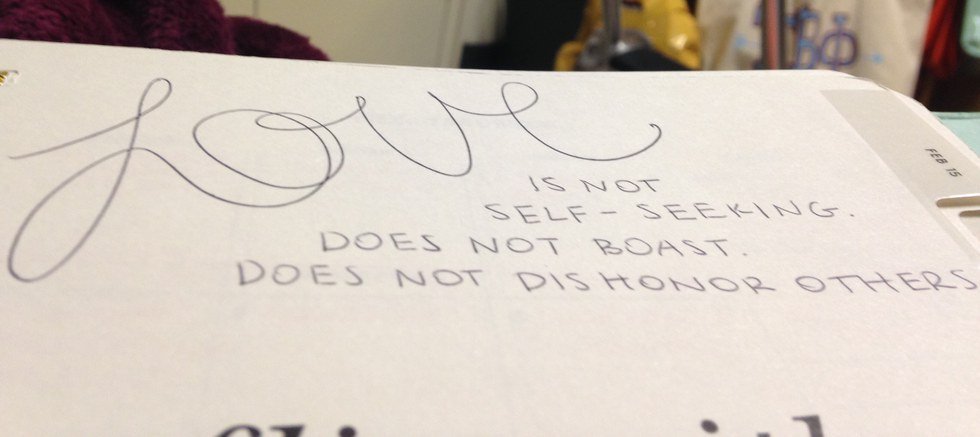 Love
IS NOT
SELF-SEEKING.
DOES NOT BOAST.
DOES NOT DISHONOR OTHERS
FEB 15